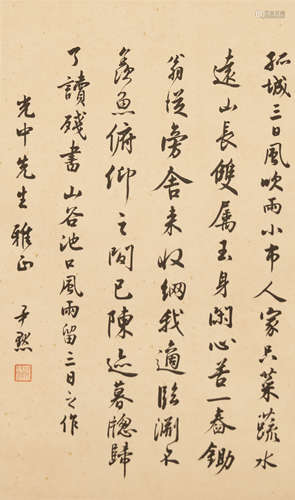 孤城三日風吹雨小市人家只菜蔬水
遠山長雙屬玉身閑心苦一舂鋤
翁從旁舍来收網我適臨淵不
羨魚俯仰之間已陳迹暮牕歸
了讀殘書山谷池口風雨留三日之作
光中先生雅正 尹默